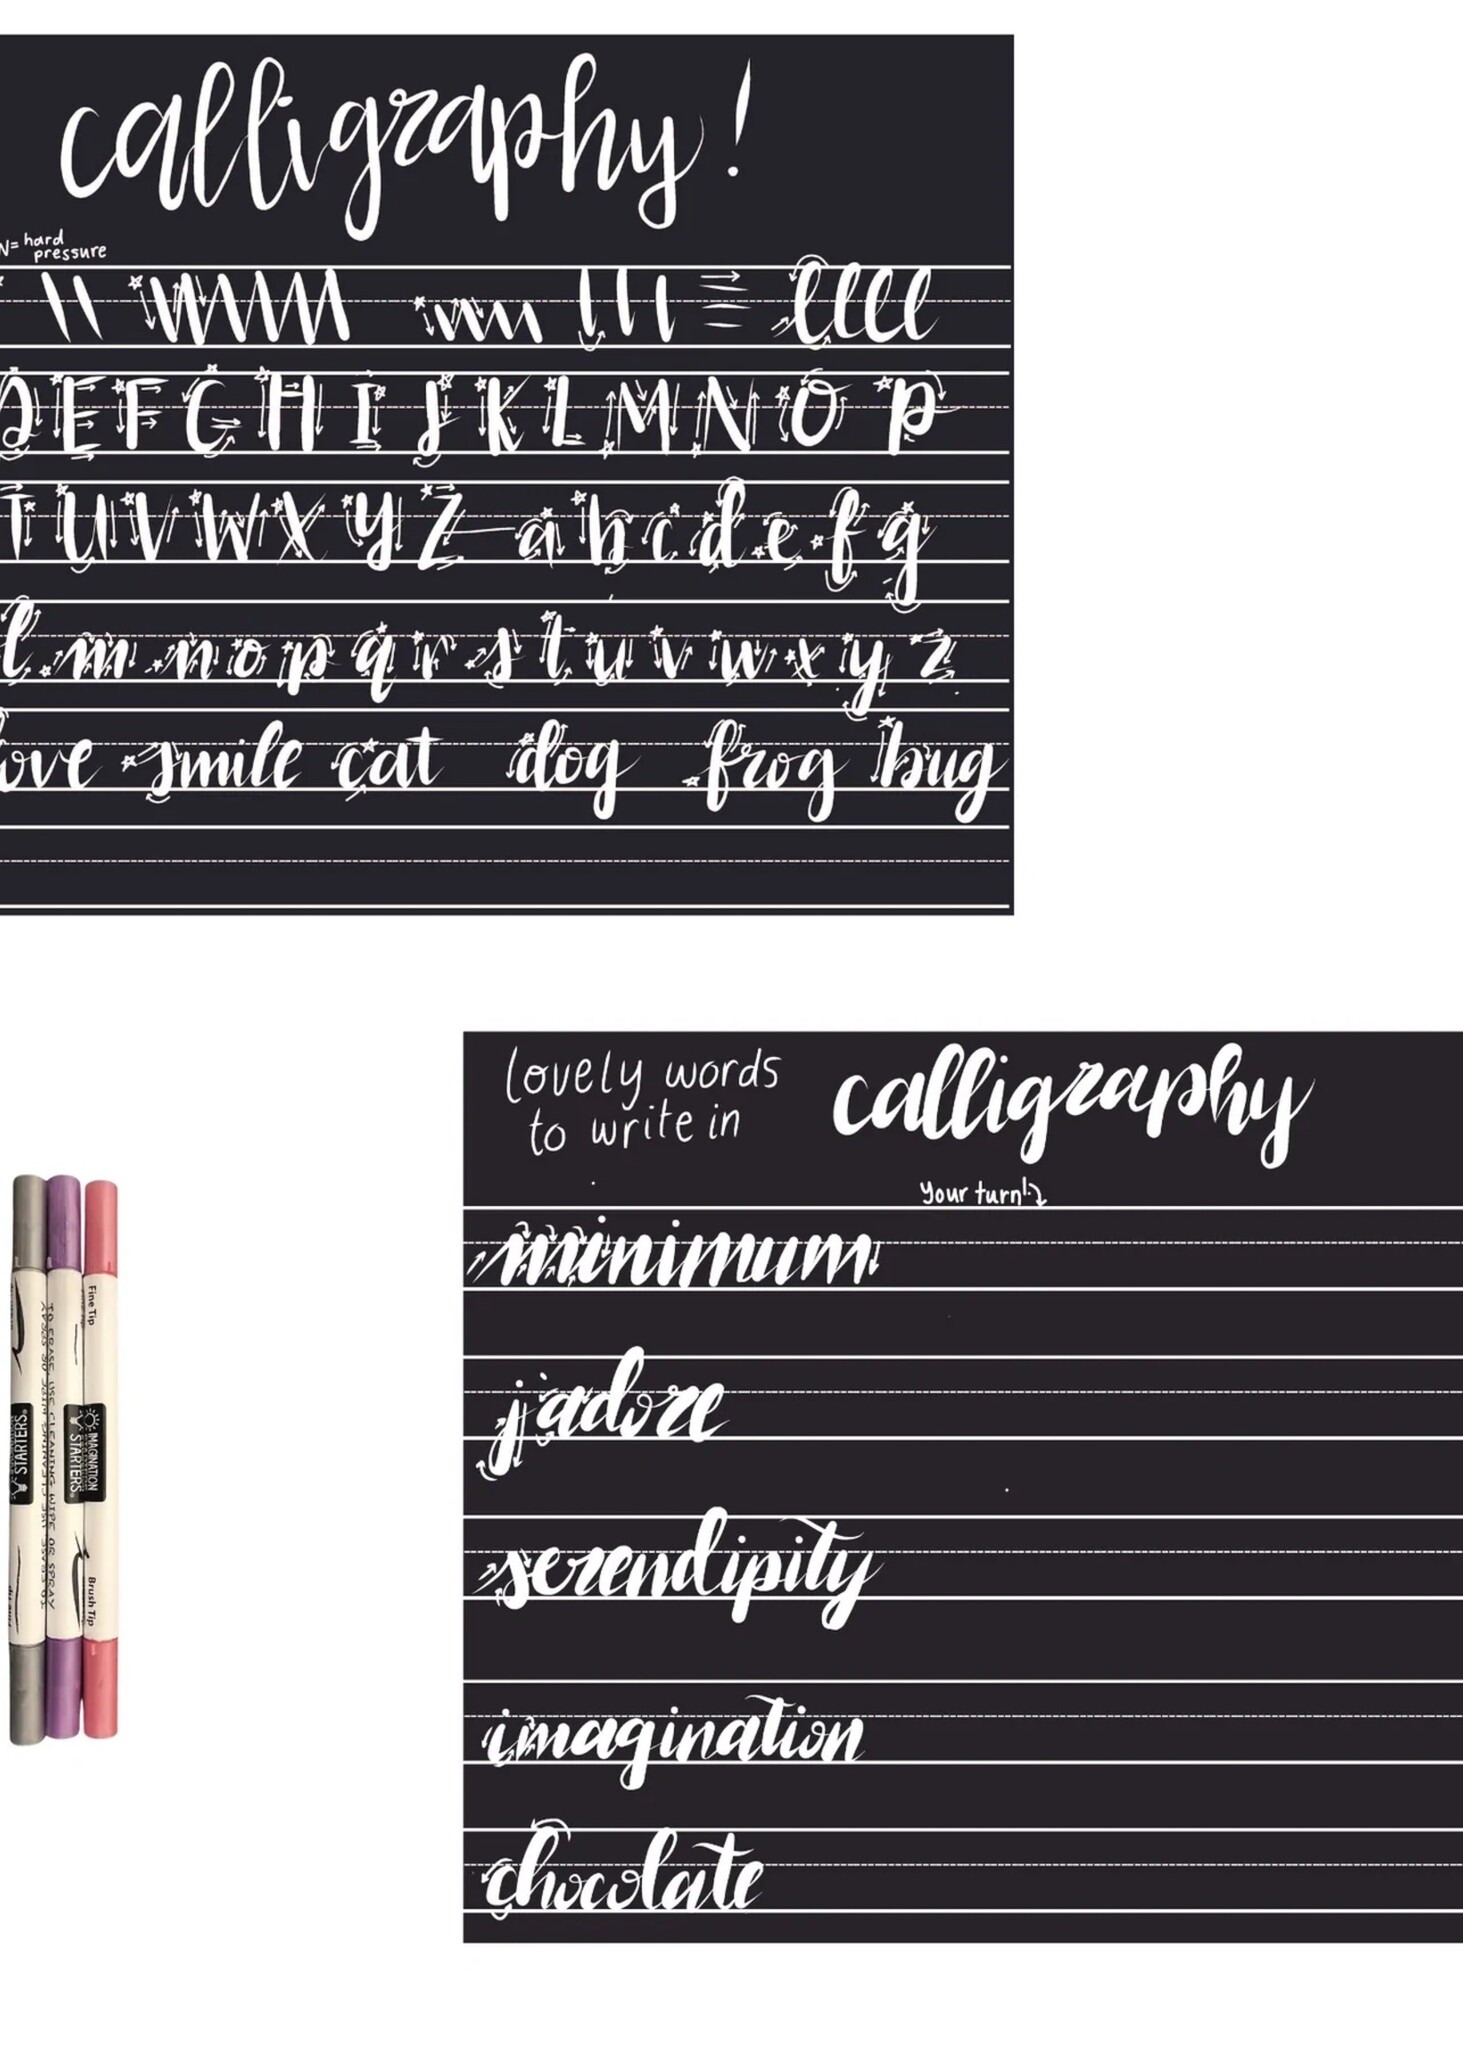 calligraphy!
N= hard
pressure
D E F G H I J K L M N O P
T U V W X Y Z a b c d e f g
l m n o p q r s t u v w x y z
love smile cat dog frog bug
lovely words
to write in
calligraphy
your turn!
minimum
j'adore
serendipity
imagination
chocolate
Fine Tip
IMAGINATION
STARTERS
Brush Tip
TO ERASE, USE CLEANING WIPE OR SPRAY
STARTERS